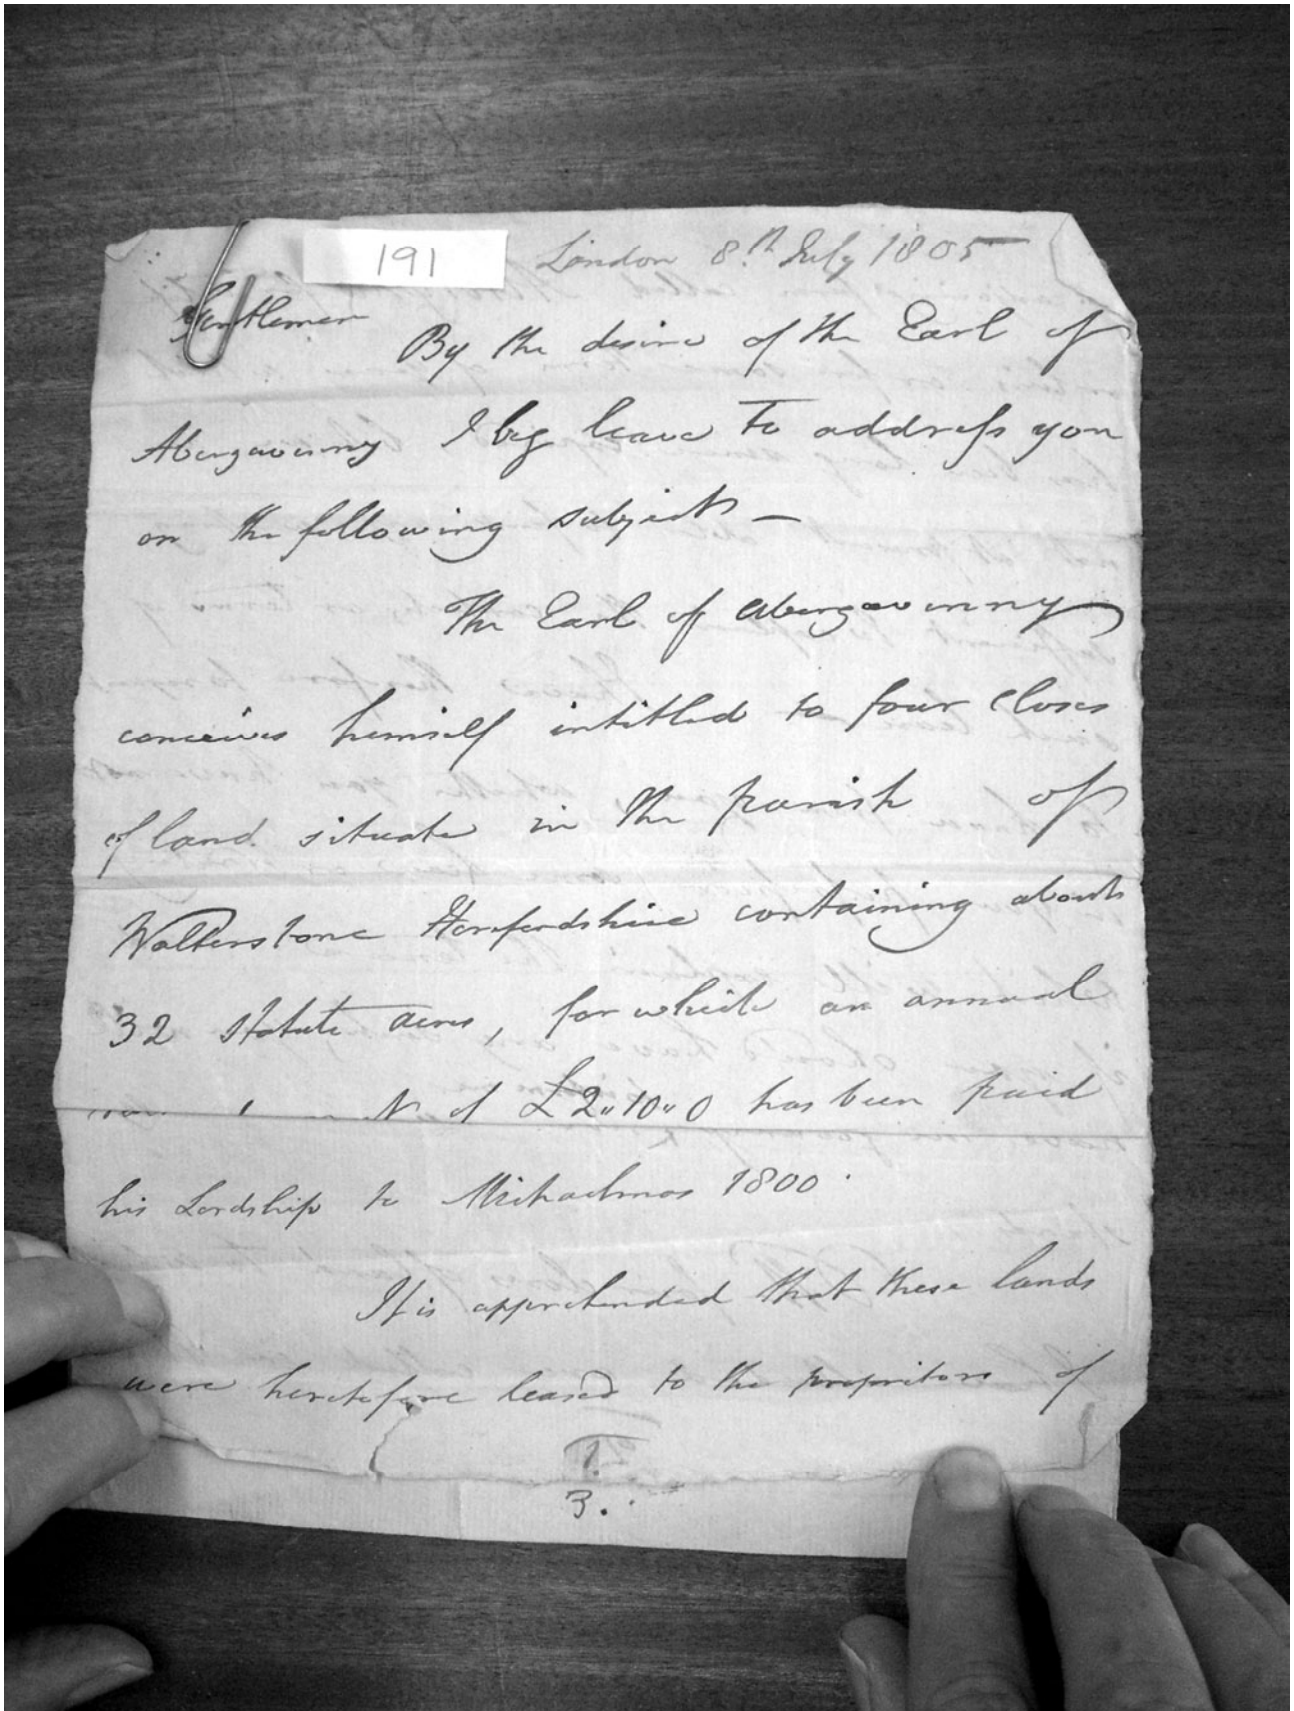 191
London 8.th July 1805
Gentlemen
By the desire of the Earl of
Abergavenny I beg leave to address you
on the following subject —
The Earl of Abergavenny
conceives himself intitled to four closes
of land situate in the parish of
Walterstone Herefordshire containing about
32 statute acres, for which an annual
of £2"10"0 has been paid
his Lordship to Michaelmas 1800.
It is apprehended that these lands
were heretofore leased to the proprietors of
1.
3.